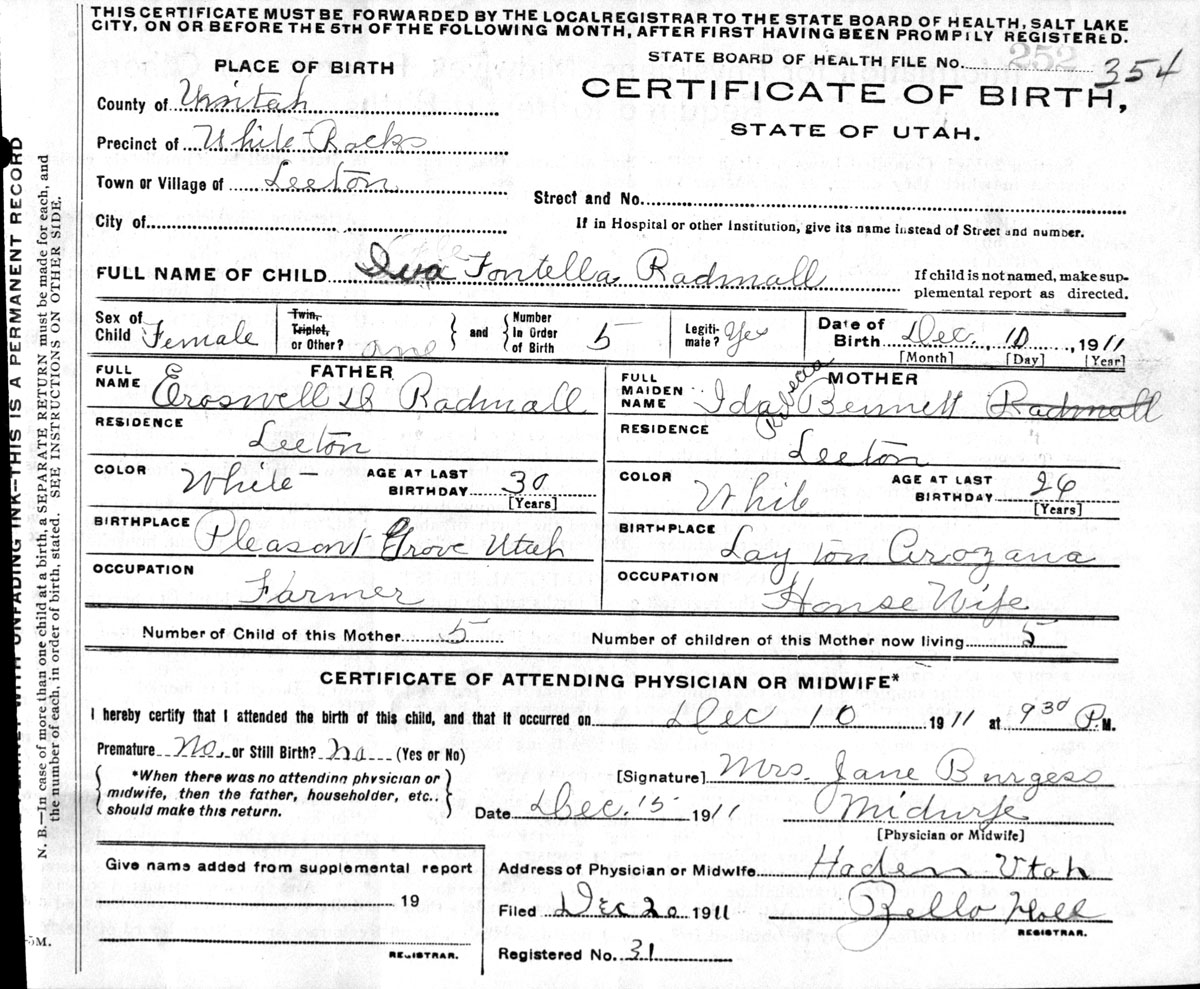 THIS CERTIFICATE MUST BE FORWARDED BY THE LOCAL REGISTRAR TO THE STATE BOARD OF HEALTH, SALT LAKE
CITY, ON OR BEFORE THE 5TH OF THE FOLLOWING MONTH, AFTER FIRST HAVING BEEN PROMPILY REGISTERED.
STATE BOARD OF HEALTH FILE NO. 252 354
PLACE OF BIRTH
CERTIFICATE OF BIRTH,
STATE OF UTAH.
County of Unitah
Precinct of White Rocks
Town or Village of Leeton
Street and No.
City of
If in Hospital or other Institution, give its name instead of Street and number.
FULL NAME OF CHILD Iva Fontella Radmall
If child is not named, make sup-
plemental report as directed.
Sex of Child Female
Twin, Triplet, or Other? one
and Number In Order of Birth 5
Legiti-mate? Yes
Date of Birth Dec. 10, 1911
[Month] [Day] [Year]
FATHER
FULL NAME Croswell D Radmall
RESIDENCE Leeton
COLOR White AGE AT LAST BIRTHDAY 30
[Years]
BIRTHPLACE Pleasant Grove Utah
OCCUPATION Farmer
MOTHER
FULL MAIDEN NAME Ida Rebecca Bennett Radmall
RESIDENCE Leeton
COLOR Whit AGE AT LAST BIRTHDAY 26
[Years]
BIRTHPLACE Layton Arozana
OCCUPATION House Wife
Number of Child of this Mother 5 Number of children of this Mother now living 5
CERTIFICATE OF ATTENDING PHYSICIAN OR MIDWIFE*
I hereby certify that I attended the birth of this child, and that it occurred on Dec 10 1911 at 9 30 P M.
Premature No, or Still Birth? no (Yes or No)
*When there was no attending physician or
midwife, then the father, householder, etc..
should make this return.
[Signature] Mrs. Jane Burgess
Date Dec. 15 1911 Midwife
[Physician or Midwife]
Give name added from supplemental report
19
REGISTRAR.
Address of Physician or Midwife Haden Utah
Filed Dec 20 1911 Bello Hall
REGISTRAR.
Registered No. 31
WITH UNFADING INK—THIS IS A PERMANENT RECORD
N. B.—In case of more than one child at a birth, a SEPARATE RETURN must be made for each, and
the number of each, in order of birth, stated. SEE INSTRUCTIONS ON OTHER SIDE.
5M.